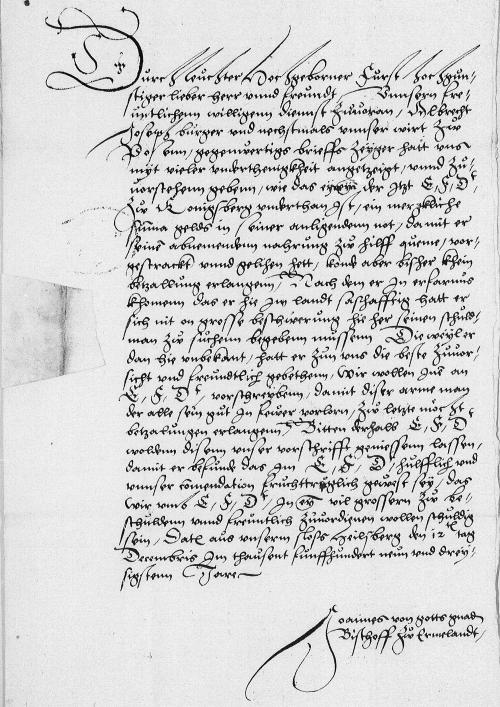 Durchleuchter Hochgeborner Furst hochgun-
stiger lieber herr unnd freundt Unnsern fre-
untlichenn willigenn dienst zuuoran, Albrecht
Joseph burger und nechstmals unnser wirt zuw
Posenn, gegenwertigs brieffs zeyger hatt uns
myt vieler underthenigkheit angetzeigt, unnd zu
uorstehenn gebenn, wie das eynem der itzt E, F, D,
zuw Konigsberg underthan ist, ein merckliche
suma gelds in seiner anligenden not, damit er
seine abnemenden nahrung zuw hilff queme, vor-
gestrackt unnd gelihen hett, konde aber bisher khein
betzallung erlangenn, Nach dem er in erfarnus
khomenn das er hie im landt sashafftig hatt er
sich nit on grosse beschwerung hieher seinen schuld-
man zuw suchenn begebenn mussenn Die weyl er
dan hie unbekant, hatt er zun uns die beste zuuor-
sicht und freundtlich gebethenn, Wir wollen ine an
E, F, D, vorschreybenn, damit diser arme man
der alle sein gut im fewer vorlorn, zuw letzte mocht
betzalungen erlangenn, Bitten derhalb E, F, D
wolden disenn unser vorschrifft geniessenn lassen,
damit er befunde das im E, F, D, hulfflich und
unnser comendation fruchttreglich gewese sey, das
wir umb E, F, D, in vil grossern zuw be-
schuldenn unnd freuntlich zuuordienen wollen schuldig
sein, Datum aus unserm slos Heilsberg den 12 tag
Decembris Im thausent funffhundert neun und drey-
sigstenn Jare
Joannes von gotts gnad
Bischoff zuw Ermelandt